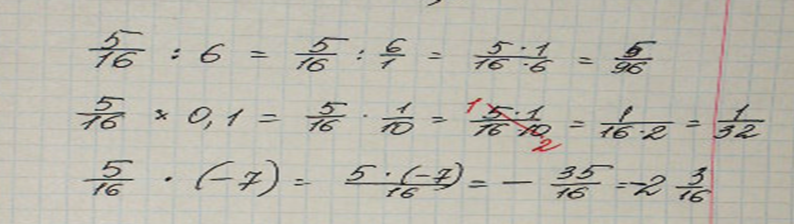 5/16 : 6 = 5/16 : 6/1 = 5·1/16·6 = 5/96
5/16 × 0,1 = 5/16 · 1/10 = 1 5·1/16·10 2 = 1/16·2 = 1/32
5/16 · (-7) = 5·(-7)/16 = - 35/16 = -2 3/16